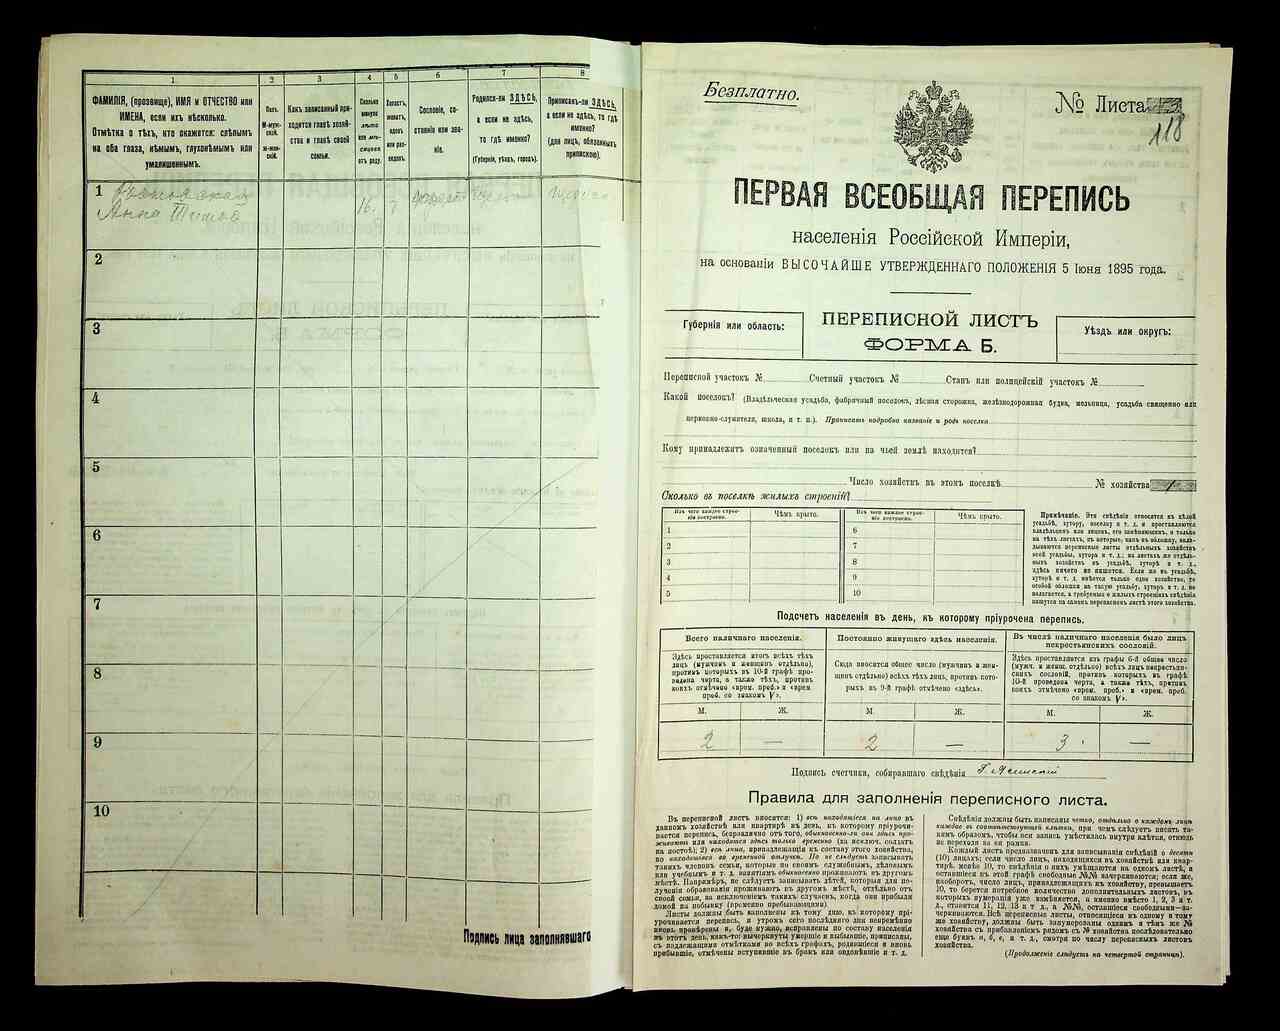 1.
ФАМИЛІЯ, (прозвище), ИМЯ и ОТЧЕСТВО или
ИМЕНА, если ихъ нѣсколько.
Отмѣтка о тѣхъ, кто окажется: слѣпымъ
на оба глаза, нѣмымъ, глухонѣмымъ или
умалишеннымъ.
2
Полъ.
М-муж-
ской.
ж-жен-
скій.
3
Какъ записанный при-
ходится главѣ хозяй-
ства и главѣ своей
семьи.
4
Сколько
минуло
лѣтъ
или мѣ-
сяцевъ
отъ роду.
5
Холостъ,
женатъ,
вдовъ
или раз-
веденъ.
6
Сословіе, со-
стояніе или зва-
ніе.
7
Родился-ли ЗДѢСЬ,
а если не здѣсь,
то гдѣ именно?
(Губернія, уѣздъ, городъ).
8
Приписанъ-ли ЗДѢСЬ,
а если не здѣсь, то гдѣ
именно?
(для лицъ, обязанныхъ
припискою).
1
Анна
16.
2
3
4
5
6
7
8
9
10
Подпись лица заполнявшаго
Безплатно.
№ Листа
118
ПЕРВАЯ ВСЕОБЩАЯ ПЕРЕПИСЬ
населенія Россійской Имперіи,
на основаніи ВЫСОЧАЙШЕ УТВЕРЖДЕННАГО ПОЛОЖЕНІЯ 5 Іюня 1895 года.
Губернія или область:
ПЕРЕПИСНОЙ ЛИСТЪ
ФОРМА Б.
Уѣздъ или округъ:
Переписной участокъ № Счетный участокъ № Станъ или полицейскій участокъ №
Какой поселокъ? (Владѣльческая усадьба, фабричный поселокъ, лѣсная сторожка, желѣзнодорожная будка, мельница, усадьба священно или
церковно-служителя, школа, и т. п.). Прописать подробно названіе и родъ поселка
Кому принадлежитъ означенный поселокъ или на чьей землѣ находится?
Число хозяйствъ въ этомъ поселкѣ № хозяйства
Сколько въ поселкѣ жилыхъ строеній?
Изъ чего каждое строе-
ніе построено.
Чѣмъ крыто.
Изъ чего каждое строе-
ніе построено.
Чѣмъ крыто.
1 6
2 7
3 8
4 9
5 10
Примѣчаніе. Эти свѣдѣнія относятся къ цѣлой
усадьбѣ, хутору, поселку и т. д. и проставляются
владѣльцемъ или лицомъ, его замѣняющимъ, и только
на тѣхъ листахъ, въ которые, какъ въ обложку, вкла-
дываются переписные листы отдѣльныхъ хозяйствъ
всей усадьбы, хутора и т. д.; на листахъ же отдѣль-
ныхъ хозяйствъ въ усадьбѣ, хуторѣ и т. д.,
здѣсь ничего не пишется. Если же въ усадьбѣ,
хуторѣ и т. д. имѣется только одно хозяйство, то
особой обложки на такую усадьбу, хуторъ и т. д. не
полагается, а требуемыя о жилыхъ строеніяхъ свѣдѣнія
пишутся на самомъ переписномъ листѣ этого хозяйства.
Подсчетъ населенія въ день, къ которому пріурочена перепись.
Всего наличнаго населенія.
Здѣсь проставляется итогъ всѣхъ тѣхъ
лицъ (мужчинъ и женщинъ отдѣльно),
противъ которыхъ въ 10-й графѣ про-
ведена черта, а также тѣхъ, противъ
коихъ отмѣчено «врем. преб.» и «врем.
преб. со знакомъ V».
Постоянно живущаго здѣсь населенія.
Сюда вносится общее число (мужчинъ и жен-
щинъ отдѣльно) всѣхъ тѣхъ лицъ, противъ кото-
рыхъ въ 9-й графѣ отмѣчено «здѣсь».
Въ числѣ наличнаго населенія было лицъ
некрестьянскихъ сословій.
Здѣсь проставляется изъ графы 6-й общее число
(мужч. и женщ. отдѣльно) всѣхъ лицъ некрестьян-
скихъ сословій, противъ которыхъ въ графѣ
10-й проведена черта, а также тѣхъ, противъ
коихъ отмѣчено «врем. преб.» и «врем. преб.
со знакомъ V».
М. Ж. М. Ж. М. Ж.
2 — 2 — 3 —
Подпись счетчика, собиравшаго свѣдѣнія
Правила для заполненія переписного листа.
Въ переписной листъ вносятся: 1) всѣ находящіеся на лицо въ
данномъ хозяйствѣ или квартирѣ въ день, къ которому пріурочи-
вается перепись, безразлично отъ того, обыкновенно-ли они здѣсь про-
живаютъ или находятся здѣсь только временно (за исключ. солдатъ
на постоѣ); 2) всѣ лица, принадлежащія къ составу этого хозяйства,
но находящіяся во временной отлучкѣ. Но не слѣдуетъ записывать
такихъ членовъ семьи, которые по своимъ служебнымъ, дѣловымъ
или учебнымъ и т. д. занятіямъ обыкновенно проживаютъ въ другомъ
мѣстѣ. Напримѣръ, не слѣдуетъ записывать дѣтей, которыя для по-
лученія образованія проживаютъ въ другомъ мѣстѣ, отдѣльно отъ
своей семьи, за исключеніемъ такихъ случаевъ, когда они прибыли
домой на побывку (временно пребывающими).
Листы должны быть заполнены къ тому дню, къ которому прі-
урочивается перепись, и утромъ сего послѣдняго дня непремѣнно
вновь провѣрены и, буде нужно, исправлены по составу населенія
въ этотъ день, какъ-то: вычеркнуты умершіе и выбывшіе, приписаны,
съ надлежащими отмѣтками во всѣхъ графахъ, родившіеся и вновь
прибывшіе, отмѣчены вступившіе въ бракъ или овдовѣвшіе и т. д.
Свѣдѣнія должны быть написаны четко, отдѣльно о каждомъ лицѣ
каждое въ соотвѣтствующей клѣткѣ, при чемъ слѣдуетъ писать та-
кимъ образомъ, чтобы вся запись умѣстилась внутри клѣтки, отнюдь
не переходя за ея рамки.
Каждый листъ предназначенъ для записыванія свѣдѣній о десяти
(10) лицахъ; если число лицъ, находящихся въ хозяйствѣ или квар-
тирѣ, менѣе 10, то свѣдѣнія о нихъ умѣщаются на одномъ листѣ, а
оставшіеся въ этой графѣ свободные №№ зачеркиваются; если же,
наоборотъ, число лицъ, принадлежащихъ къ хозяйству, превышаетъ
10, то берется потребное количество дополнительныхъ листовъ, въ
которыхъ нумерація уже измѣняется, а именно вмѣсто 1, 2, 3 и т.
д., ставится 11, 12, 13 и т. д., а №№, оставшіеся свободными—за-
черкиваются. Всѣ переписные листы, относящіеся къ одному и тому
же хозяйству, должны быть занумерованы однимъ и тѣмъ же №
хозяйства съ прибавленіемъ рядомъ съ № хозяйства послѣдовательно
еще буквъ а, б, в, и т. д., смотря по числу переписныхъ листовъ
хозяйства.
(Продолженіе слѣдуетъ на четвертой страницѣ).